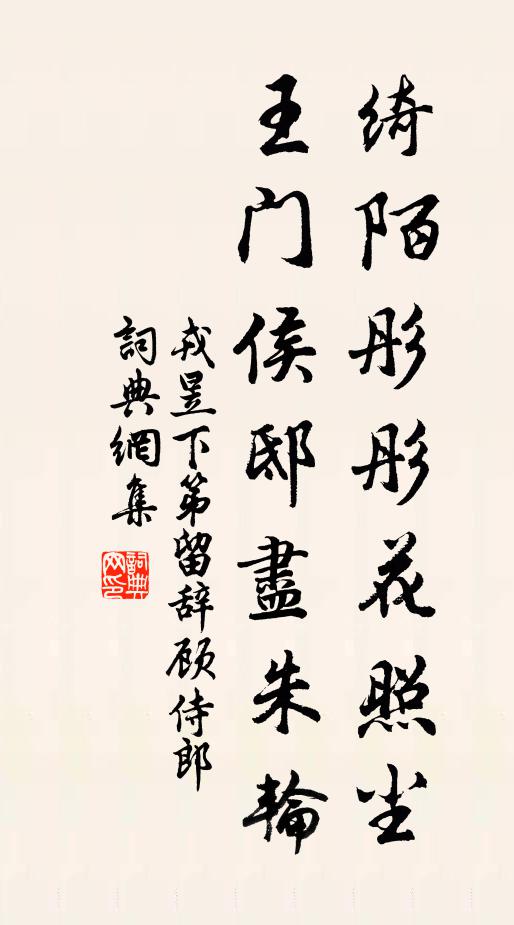 绮陌彤彤花照尘
王门侯邸盡朱輪
戎昱下第留辞顾侍郎
詞典網集
詞典网印